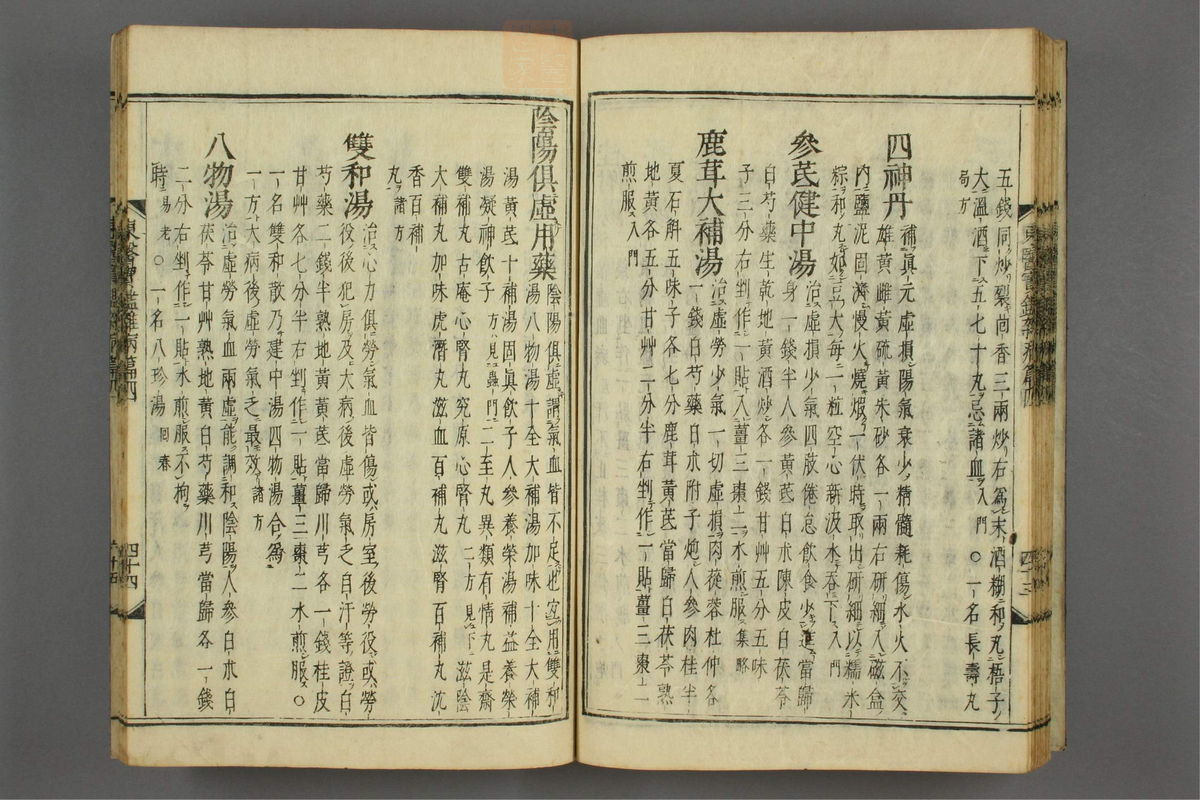 五錢同炒裂茴香三兩炒右爲末酒糊和丸梧子
大溫酒下五七十丸忌諸血入門○一名長壽丸
局方
四神丹補眞元虛損陽氣衰少精髓耗傷水火不交
雄黃雌黃硫黃朱砂各一兩右硏細入磁盒
內鹽泥固濟慢火煆一伏時取出硏細以糯米
粽和丸如豆大每一粒空心新汲水呑下入門
參芪健中湯治虛損少氣四肢倦怠飮食少進當歸
身一錢半人參黃芪白朮陳皮白茯苓
白芍藥生乾地黃酒炒各一錢甘艸五分五味
子三分右剉作一貼入薑三棗二水煎服集略
鹿茸大補湯治虛勞少氣一切虛損肉蓯蓉杜仲各
一錢白芍藥白朮附子炮人參肉桂半
夏石斛五味子各七分鹿茸黃芪當歸白茯苓熟
地黃各五分甘艸二分半右剉作一貼薑三棗二
煎服入門
四十三
陰陽俱虛用藥陰陽俱虛謂氣血皆不足也宜用雙和
湯八物湯十全大補湯加味十全大補
湯黃芪十補湯固眞飮子人參養榮湯補益養榮
湯凝神飮子方見蟲門二至丸異類有情丸是齋
雙補丸古庵心腎丸究原心腎丸二方見下滋陰
大補丸加味虎潛丸滋血百補丸滋腎百補丸沈
香百補
丸諸方
雙和湯治心力俱勞氣血皆傷或房室後勞役或勞
役後犯房及大病後虛勞氣乏自汗等證白
芍藥二錢半熟地黃黃芪當歸川芎各一錢桂皮
甘艸各七分半右剉作一貼薑三棗二水煎服○
一名雙和散乃建中湯四物湯合爲
一方大病後虛勞氣乏最效諸方
八物湯治虛勞氣血兩虛能調和陰陽人參白朮白
茯苓甘艸熟地黃白芍藥川芎當歸各一錢
二分右剉作一貼水煎服不拘
時易老○一名八珍湯回春
東醫寶鑑雜病篇四
四十四